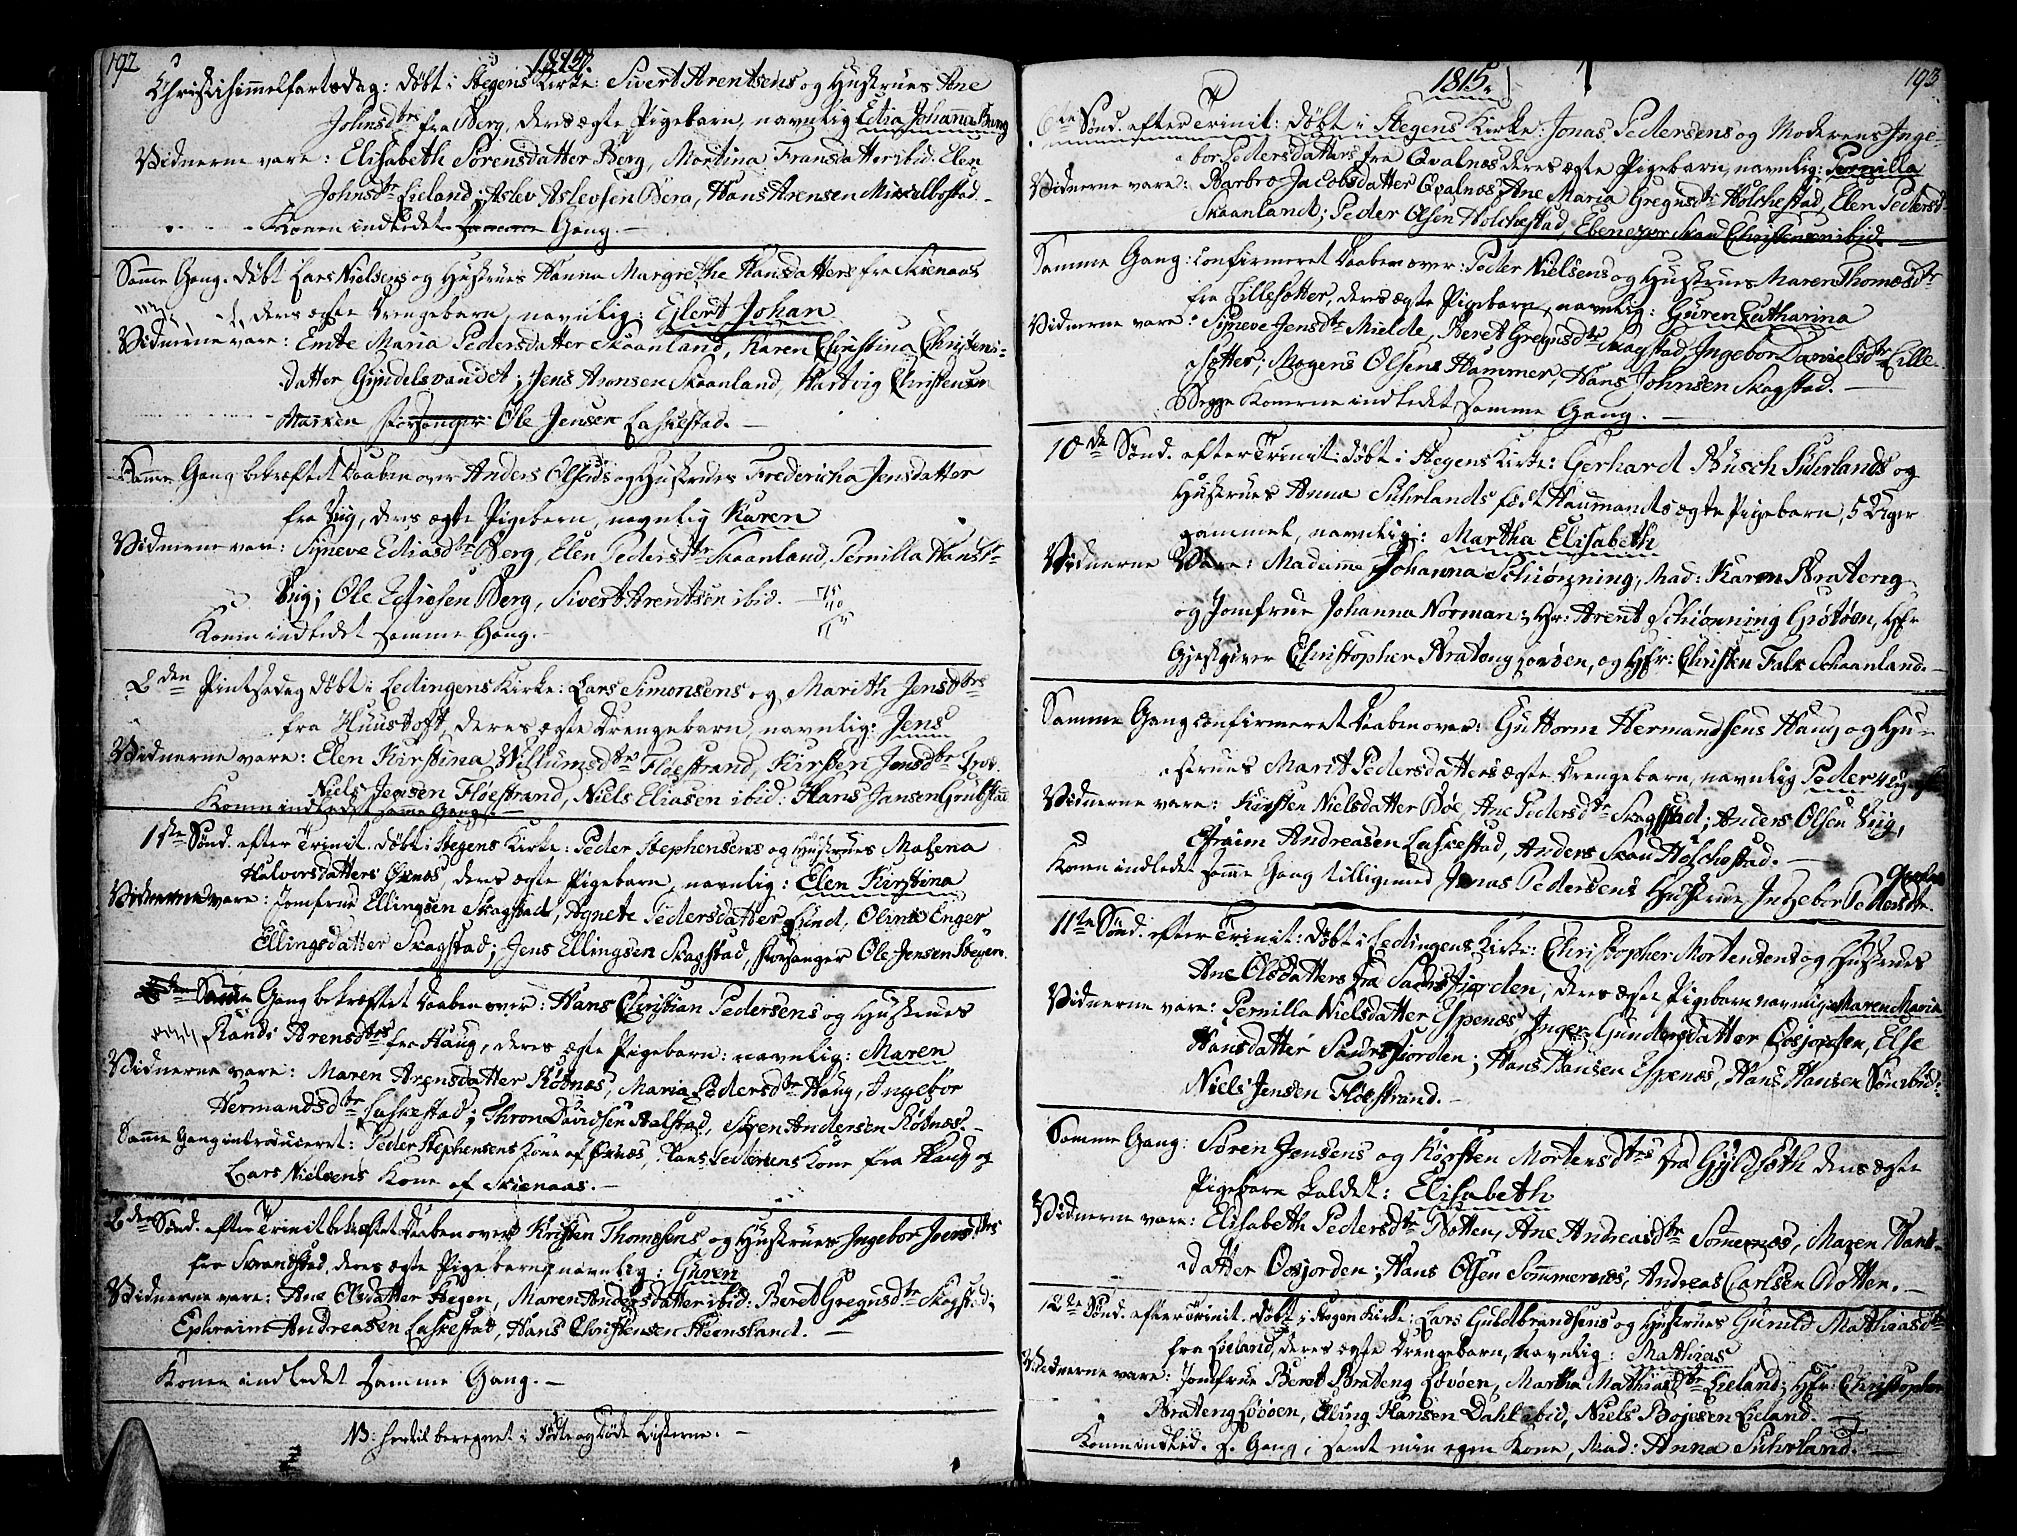 192
1815.
Christi himmelfartsdag: døbt i Stegens Kirke: Sivert Arentsens og Hustrues Ane
Johnsdtrs fra Berg, deres ægte Pigebarn, navnlig Edia Johanna Berg
Vidnerne vare: Elisabeth Sørensdatter Berg, Martina Fransdatter ibid: Elen
Johnsdtr Leeland; Aslev Aslevsen Berg, Hans Arensen Mikkelbostad.
Konen indledet samme Gang.
Samme Gang døbt Lars Nielsens og Hustrues Hanna Margrethe Hansdatters fra Skienaas
deres ægte Drengebarn, navnlig: Ejlert Johan
Vidnerne vare: Emte Maria Pedersdatter Skaanland, Karen Christina Christens-
datter Gyndelsvandet; Jens Aronsen Skaanland, Hartvig Christensen
Marken Forsanger Ole Jensen Laskestad.
Samme Gang bekræftet Daaben over Anders Olsens og Hustrues Fredericha Jensdatter
fra Viig, deres ægte Pigebarn, navnlig Karen
Vidnerne vare: Synneve Ediasdtr Berg, Elen Pedersdtr Skaanland, Pernilla Hansdtr
Viig; Ole Ediesen Berg, Sivert Arentsen ibid.
Konen indledet samme Gang.
2den Pintsedag døbt i Ledingens Kirke: Lars Simonsens og Marith Jensdtrs
fra Huustoft, deres ægte Drengebarn, navnlig: Jens
Vidnerne vare: Elen Kirstina Willumsdtr Floestrand, Kirsten Jensdtr
Niels Jensen Floestrand, Niels Eliasen ibid: Hans Jansen
Konen indledet samme Gang.
1ste Sønd. efter Trinit. døbt i Stegens Kirke: Peder Stephensens og Hustrues Malena
Halvorsdatters Øxnæs, deres ægte Pigebarn, navnlig: Elen Kirstina
Vidnerne vare: Jomfrue Ellingsen Skagstad, Agnete Pedersdatter Lund, Olina Enger
Ellingsdatter Skagstad; Jens Ellingsen Skagstad, Forsanger Ole Jensen Stegen.
Samme Gang bekræftet Daaben over: Hans Christian Pedersens og Hustrues
Randi Arensdtrs fra Haug, deres ægte Pigebarn: navnlig: Maren
Vidnerne vare: Maren Arensdatter Rødnæs, Maria Pedersdtr Haug, Ingebor
Hermandsdtr Laskestad; Thron Davidsen Aalstad, Søren Andersen Rødnæs.
Samme Gang introduceret: Peder Stephensens Kone af Øxnæs, Hans Pedersens Kone fra Haug og
Lars Nielsens Kone af Skienaas.
2den Sønd. efter Trinit bekræftet Daaben over Kristen Thomæsens og Hustrues Ingebor
fra Strandstad, deres ægte Pigebarn, navnlig: Guren
Vidnerne vare: Ane Olsdatter Stegen, Maren Andersdatter ibid: Beret Gregusdtr Skagstad;
Ephraim Andreasen Laskestad, Hans Christensen Steensland.
Konen indledet samme Gang.
NB: hertil beregnet i Fødte og døde Listerne.
1815.
193
6te Sønd. efter Trinit: døbt i Stegens Kirke: Jonas Pedersens og Moderens Inge-
bor Pedersdatters fra Qvalnæs deres ægte Pigebarn, navnlig: Pernilla
Vidnerne vare: Barbro Jacobsdatter Qvalnæs, Ane Maria Gregusdtr Holchestad, Elen Pedersd
Skaanland; Peder Olsen Holchestad, Ebenezer Skau Christensen ibid.
Samme Gang: confirmeret Daaben over: Peder Nielsens og Hustrues Maren Thomæsdtr
fra Lillesætter, deres ægte Pigebarn, navnlig: Guren Catharina
Vidnerne vare: Synneve Jensdtr Mielde, Beret Gregusdtr Skagstad, Ingebor Danielsdtr Lille-
sætter; Mogens Olsens Hammer, Hans Johnsen Skagstad.
Begge Konerne indledet samme Gang.
10de Sønd. efter Trinit: døbt i Stegens Kirke: Gerhard Busch Suhrlands og
Hustrues Anna Suhrlands født Haumands ægte Pigebarn, 5 Uger
gammel, navnlig: Martha Elisabeth
Vidnerne Vare: Madame Johanna Schiønning, Mad: Karen Brateng
og Jomfrue Johanna Norman; Hr: Arent Schiønning Grøtøen, Hr
Gjestgiver Christopher Brateng Løvøen, og Hr: Christen Falk Schaanland.
Samme Gang confirmeret Daaben over: Guttorm Hermandsens Haug og Hu-
struees Marit Pedersdatters ægte Drengebarn, navnlig Peder
Vidnerne vare: Kirsten Nielsdatter Bøe, Ane Pedersdtr Skagstad; Anders Olsen Viig,
Efraim Andreasen Laskestad, Anders Skau Holchestad.
Konen indledet samme Gang tilligemed Jonas Pedersens Hustrue, Ingebor Pedersdtr.
11te Sønd. efter Trinit: døbt i Ledingens Kirke: Christopher Mortensens og Hustrues
Ane Olsdatters fra Sandsfiorden, deres ægte Pigebarn navnlig: Maren Maria
Vidnerne vare: Pernilla Nielsdatter Espenæs, Inger Gundersdatter, Else
Hansdatter Sandsfiorden; Hans Hansen Espenæs, Hans Hansen Sønibid:
Niels Jensen Floestrand.
Samme Gang: Søren Jensens og Kirsten Mortensdtrs fra Gyldsæth deres ægte
Pigebarn kaldet: Elisabeth
Vidnerne vare: Elisabeth Pedersdtr Notten, Ane Andreasdtr Somernæs, Maren Hans-
datter; Hans Olsen Sommernæs, Andreas Carlsen
12te Sønd. efter Trinit. døbt i Stegen Kirke: Lars Guldbrandsens og Hustrues Gunild Mathiasdtr
fra Leeland, deres ægte Drengebarn, navnlig: Mathias
Vidnerne vare: Jomfrue Beret Brateng Løvøen, Martha Mathiasdtr Leeland; Hr: Christopher
Brateng Løvøen, Elling Hansen Dahl ibid, Niels Bojesen Leeland.
Konen indled. s. Gang, samt min egen Kone, Mad: Anna Suhrland.